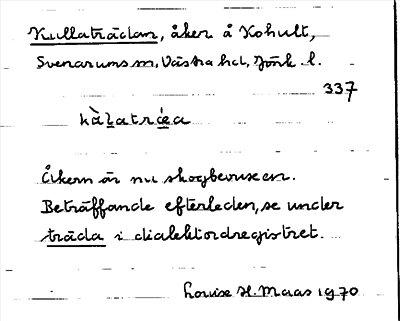 Kullaträdan, åker å Kohult,
Svenarums sn, Västra hd, Jönk. l.
337
Åkern är nu skogbevuxen.
Beträffande efterleden, se under
träda i dialektordregistret.
Louise H. Maas 1970